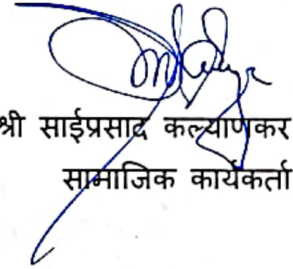 श्री साईप्रसाद कल्याणकर
सामाजिक कार्यकर्ता